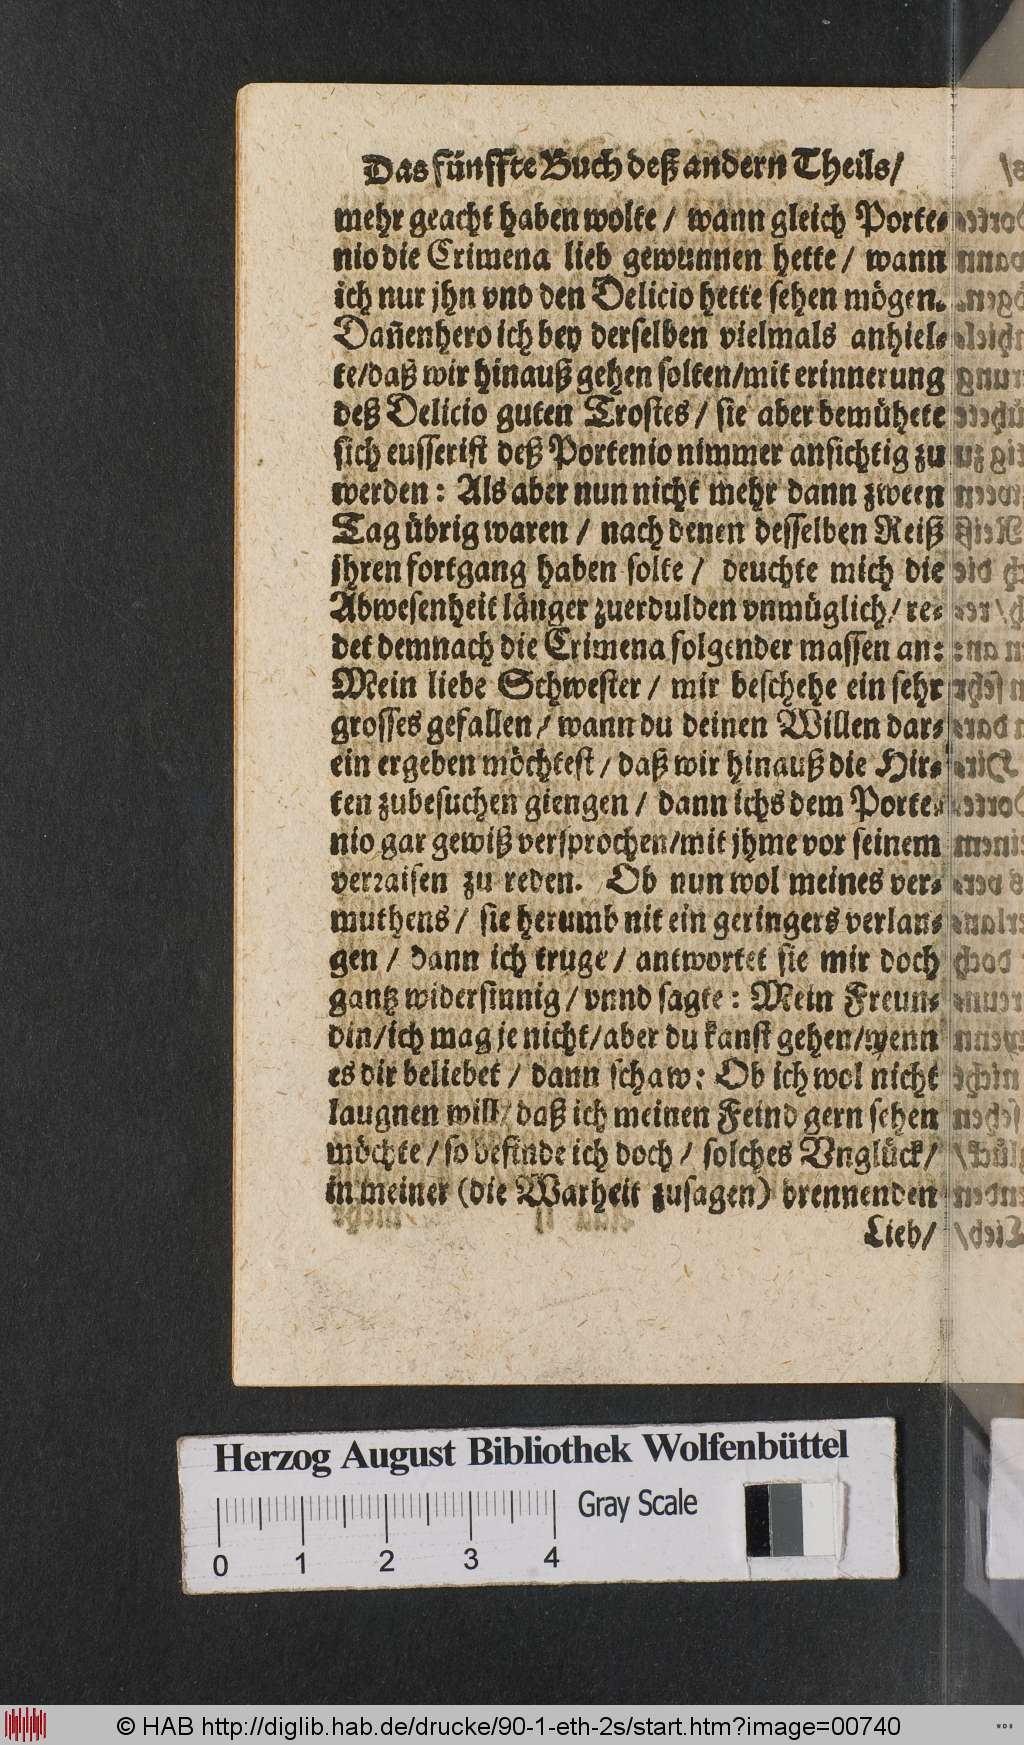 Das fünffte Buch deß andern Theils/
mehr geacht haben wolte / wann gleich Porte-
nio die Crimena lieb gewunnen hette / wann
ich nur jhn vnd den Delicio hette sehen mögen.
Dañenhero ich bey derselben vielmals anhiel-
te/daß wir hinauß gehen solten/mit erinnerung
deß Delicio guten Trostes / sie aber bemühete
sich eusserist deß Portenio nimmer ansichtig zu
werden : Als aber nun nicht mehr dann zween
Tag übrig waren / nach denen desselben Reiß
jhren fortgang haben solte / deuchte mich die
Abwesenheit länger zuerdulden vnmüglich/ re-
det demnach die Crimena folgender massen an:
Mein liebe Schwester / mir beschehe ein sehr
grosses gefallen / wann du deinen Willen dar-
ein ergeben möchtest / daß wir hinauß die Hir-
ten zubesuchen giengen / dann ichs dem Porte-
nio gar gewiß versprochen/mit jhme vor seinem
verraisen zu reden. Ob nun wol meines ver-
muthens / sie herumb nit ein geringers verlan-
gen / dann ich truge / antwortet sie mir doch
gantz widersinnig / vnnd sagte : Mein Freun-
din/ich mag je nicht/aber du kanst gehen/wenn
es dir beliebet / dann schaw: Ob ich wol nicht
laugnen will/ daß ich meinen Feind gern sehen
möchte / so befinde ich doch / solches Vnglück/
in meiner (die Warheit zusagen) brennenden
Lieb/
Herzog August Bibliothek Wolfenbüttel
Gray Scale
0 1 2 3 4
© HAB http://diglib.hab.de/drucke/90-1-eth-2s/start.htm?image=00740